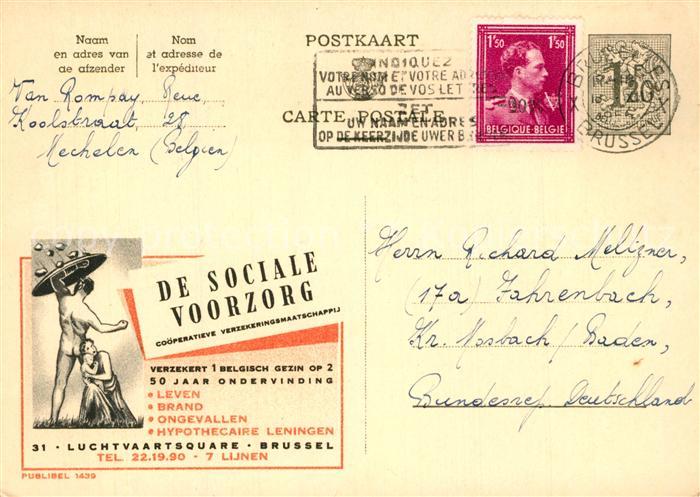 Naam
en adres van
de afzender
Nom
et adresse de
l'expéditeur
POSTKAART
CARTE POSTALE
INDIQUEZ
VOTRE NOM ET VOTRE ADRESSE
AU VERSO DE VOS LETTRES
UW NAAM EN ADRES
OP DE KEERZIJDE UWER
1F50
1F50
BELGIQUE-BELGIE
1,20
BRUSSEL
Van Rompay René
Koolstraat, 28
Mechelen (Belgien)
DE SOCIALE
VOORZORG
COÖPERATIEVE VERZEKERINGSMAATSCHAPPIJ
VERZEKERT 1 BELGISCH GEZIN OP 2
50 JAAR ONDERVINDING
• LEVEN
• BRAND
• ONGEVALLEN
• HYPOTHECAIRE LENINGEN
31 • LUCHTVAARTSQUARE • BRUSSEL
TEL. 22.19.90 - 7 LIJNEN
PUBLIBEL 1439
Herrn Richard Meltzner,
(17a) Fahrenbach,
Kr. Mosbach/Baden,
Bundesrep. Deutschland